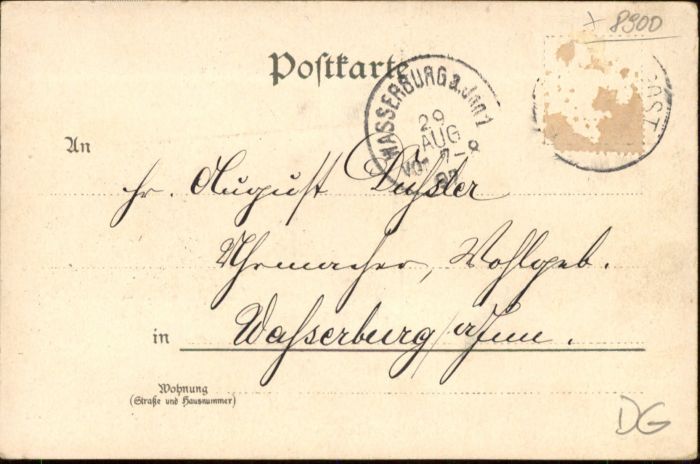 + 8900
Postkarte
WASSERBURG a. Inn 1
29
AUG
Vor. 7-8
An
Hr. August
Uhrmacher, Wohlgeb.
in Wasserburg a/Inn.
Wohnung
(Straße und Hausnummer)
DG